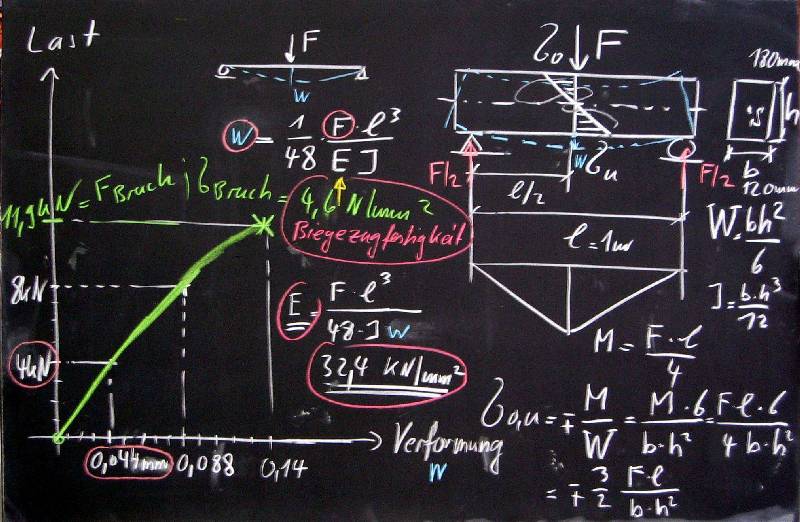 Last
F
W
W = 1/48 · F · l³ / E J
11,9kN = F Bruch ; σ Bruch = 4,6 N/mm²
Biegezugfestigkeit
8kN
4kN
E = F · l³ / 48 · J W
32,4 KN/mm²
0,044mm 0,088 0,14
Verformung
W
σo F
W σu
F/2 F/2
l/2
l = 1m
M = F · l / 4
h
b
120mm
W = bh² / 6
J = b·h³ / 12
σo,u = ∓ M / W = M · 6 / b · h² = F · l · 6 / 4 b · h²
= ∓ 3/2 F · l / b · h²